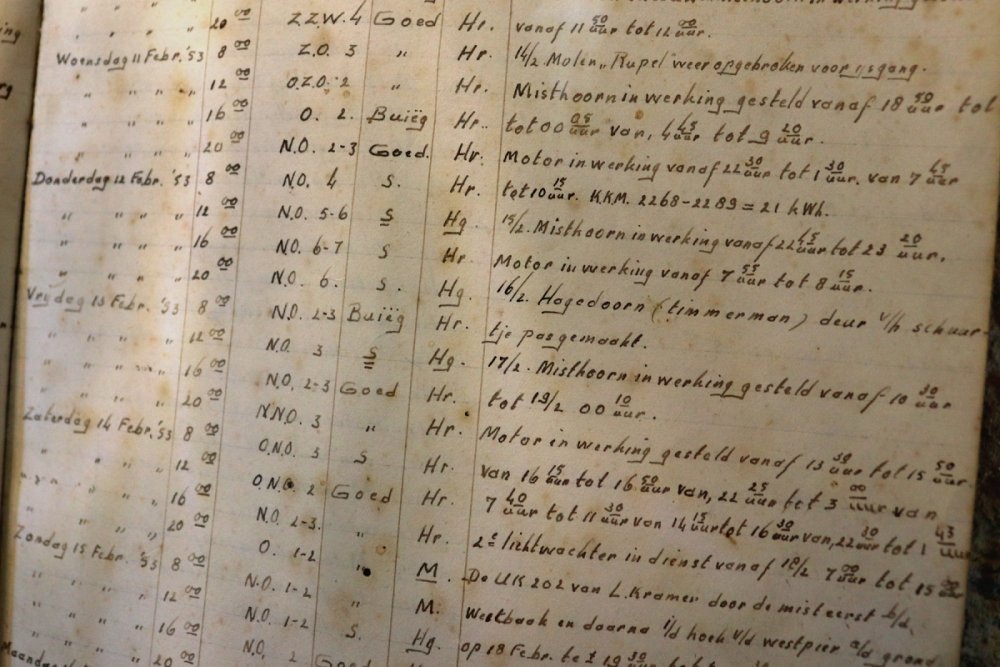 20 00 Z.Z.W. 4 Goed Hr. vanaf 11 50 uur tot 12 00 uur.
Woensdag 11 Febr. '53 8 00 Z.O. 3 " Hr. 14/2. Molen „Rupel" weer opgebroken voor ijsgang.
" " " " 12 00 O.Z.O. 2 " Hr. Misthoorn in werking gesteld vanaf 18 50 uur tot
" " " " 16 00 O. 2. Buiïg Hr. tot 00 05 uur van, 4 45 uur tot 9 20 uur.
" " " " 20 00 N.O. 2-3 Goed. Hr. Motor in werking vanaf 22 30 uur tot 1 30 uur. van 7 45 uur
Donderdag 12 Febr. '53 8 00 N.O. 4 S. Hr. tot 10 15 uur. KKM. 2268-2289 = 21 kWh.
" " " " 12 00 N.O. 5-6 S Hg. 15/2. Misthoorn in werking vanaf 22 45 uur tot 23 20 uur.
" " " " 16 00 N.O. 6-7 S Hr. Motor in werking vanaf 7 55 uur tot 8 15 uur.
" " " " 20 00 N.O. 6. S. Hg. 16/2. Hagedoorn (timmerman) deur v/h schuur-
Vrijdag 13 Febr. '53 8 00 N.O. 2-3 Buiïg Hr. tje pasgemaakt.
" " " " 12 00 N.O. 3 S Hg. 17/2. Misthoorn in werking gesteld vanaf 10 30 uur
" " " " 16 00 N.O. 2-3 Goed Hr. tot 19/2 00 10 uur.
" " " " 20 00 N.N.O. 3 " Hr. Motor in werking gesteld vanaf 13 30 uur tot 15 50 uur.
Zaterdag 14 Febr. '53 8 00 O.N.O. 3 S Hr. van 16 15 uur tot 16 50 uur van, 22 25 uur tot 3 00 uur van
" " " " 12 00 O.N.O. 2 Goed Hr. 7 40 uur tot 11 30 uur van 14 15 uur tot 16 30 uur van, 22 30 uur tot 1 45 uur
" " " " 16 00 N.O. 2-3. " Hr. 2e lichtwachter in dienst vanaf 18/2 7 00 uur tot 15 00 uur
" " " " 20 00 O. 1-2 " M. De UK 202 van L. Kramer door de mist eerst b/d.
Zondag 15 Febr. '53 8 00 N.O. 1-2 " M. Westbaak en daarna i/d hoek v/d westpier a/d grond
" " " " 12 00 N.O. 1-2 S. Hg. op 18 Febr. te ± 19 30
" " " " 16 00 N.O. 2 Goed
" " " " 20 00
Maandag